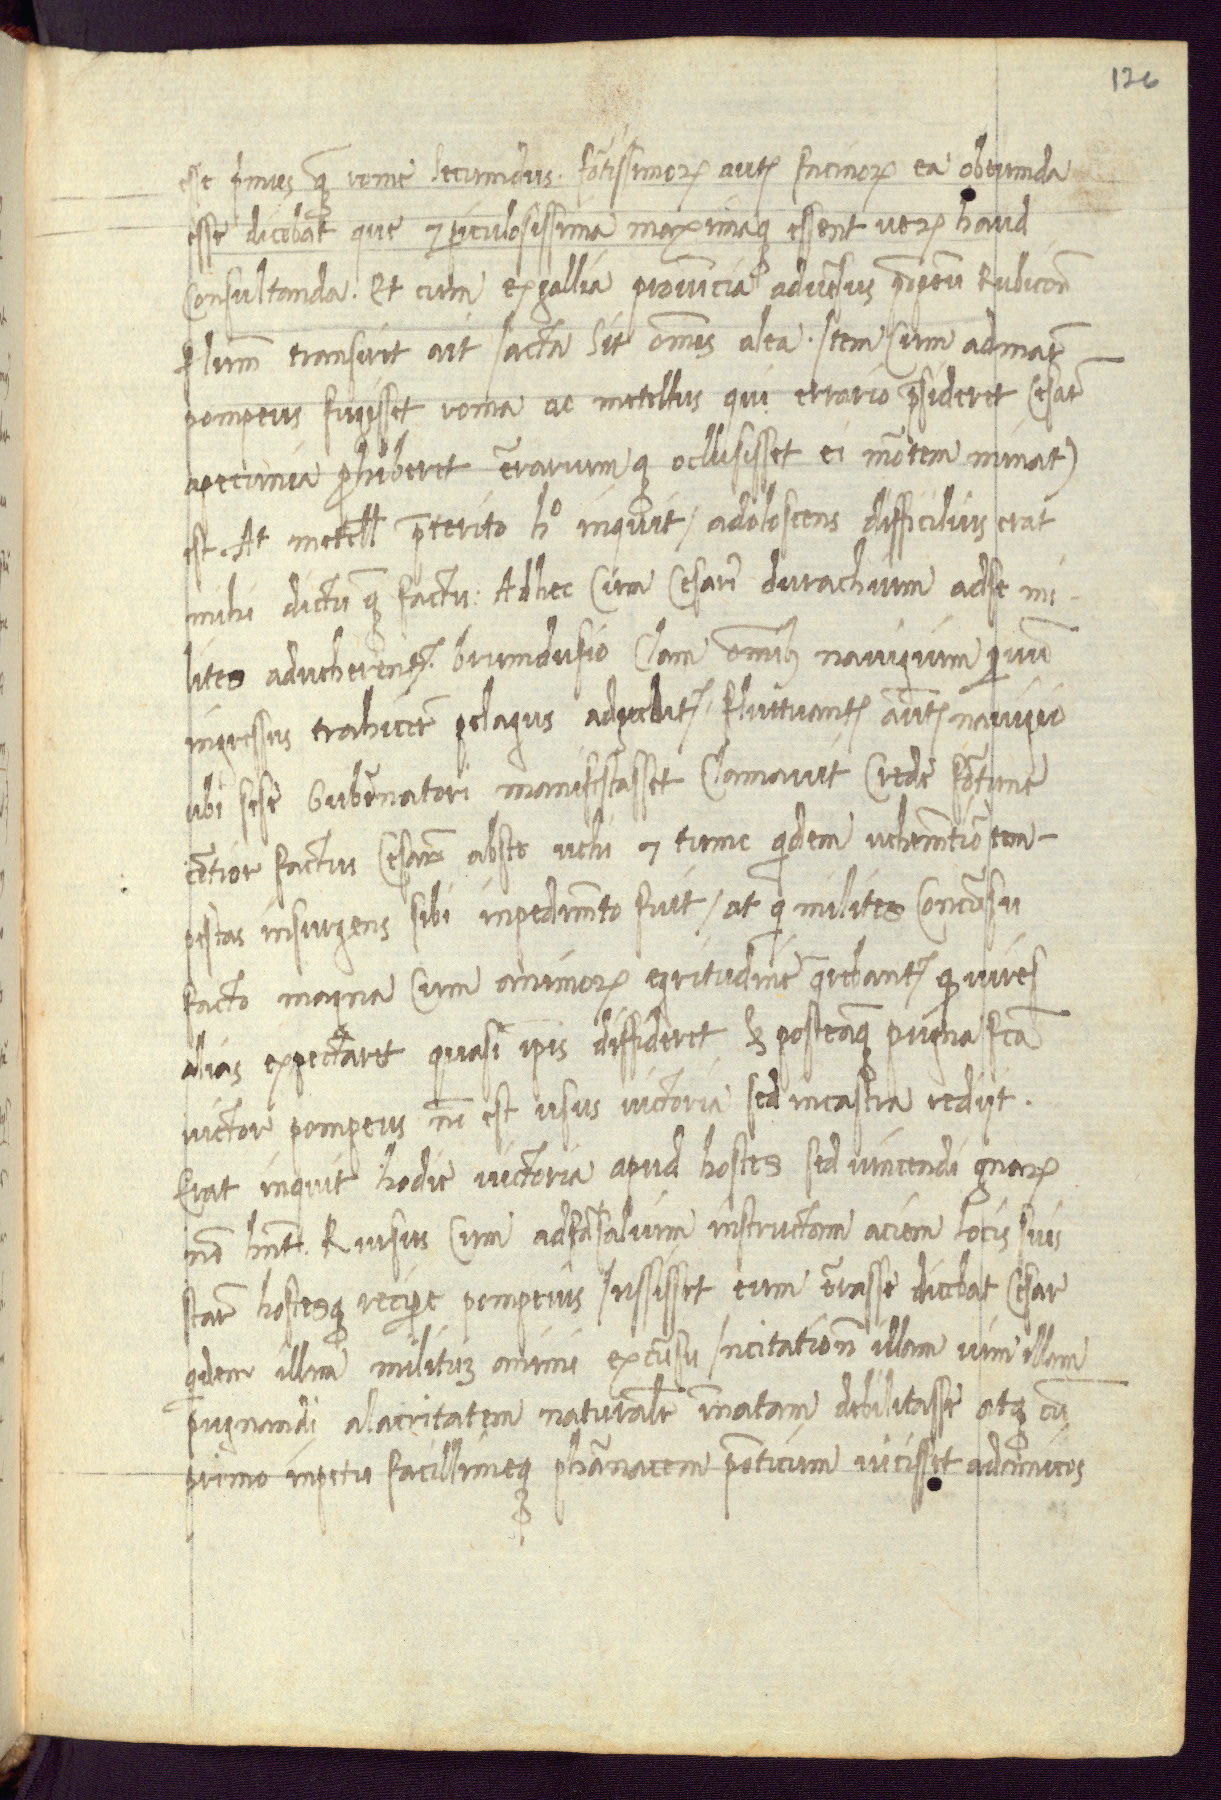 126
esse p̄mus q̄ rome secundus. fortissimoꝝ autē facinoꝝ ea obeunda
esse dicebat que ⁊ ꝑiculosissima maximaqꝫ essent ueꝝ haud
Consultanda. Et cum ex gallia prouincia aduersus pōpeiū Rubiconē
flumē transiuit ait Iacta sit omnis alea. Item Cum ad marē
pompeius fugisset roma ac metellus qui errario p̄sideret Cesarē
a pecunia ꝓhiberet erariumqꝫ oclusisset ei mortem minatꝰ
est. At metell p̄terito hº inquit / adoloscens difficilius erat
mihi dictū qꝫ factū: Ad hec Cum Cesari durachium ad se mi-
lites adueherentꝰ. brundusio Clam omībꝫ nauigium ꝑuū
ingressus trahicere pelagus adgrediebatꝰ. fluctuantꝰ autē nauigio
ubi sese Gubernatori manifestasset Clamauit Crede fortune
certior factus Cesarē abs te uehi ⁊ tunc qdem uehemētior tem-
pestas insurgens sibi inpedimēto fuit / at qꝫ milites Concursu
facto magna Cum animoꝝ egritudine q̄rebantꝰ qꝫ uires
alias expectaret quasi ip̄is diffideret & posteaqꝫ pugna fc̄a
uictor pompeius nō est usus uictoria sed in castra rediјt.
Erat inquit hodie uictoria apud hostes sed uincendi gnaꝝ
nō hn̄t. Rursus Cum ad farsalium instructam aciem locis suis
stare hostesqꝫ recipere pompeius Iussisset eum errasse dicebat Cesar
qdem illam militum animi excursu Incitationē illam uim illam
pugnandi alacritatem naturale innatam debilitasse atqꝫ cū
primo inpetu facillimeqꝫ pharnacem ponticum uicisset ad amicos